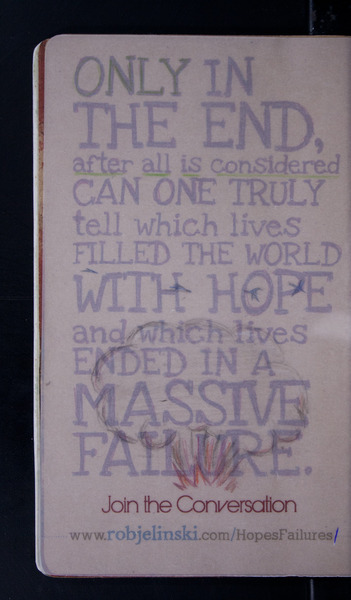 ONLY IN
THE END,
after all is considered
CAN ONE TRULY
tell which lives
FILLED THE WORLD
WITH HOPE
and which lives
ENDED IN A
MASSIVE
FAILURE.
Join the Conversation
www.robjelinski.com/HopesFailures/